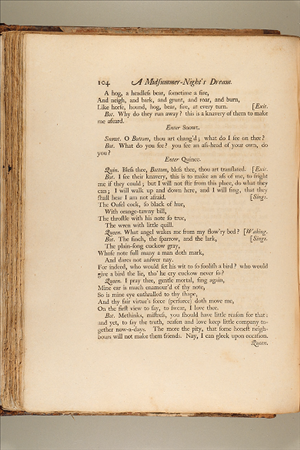 104 A Midsummer-Night's Dream.
A hog, a headless bear, sometime a fire,
And neigh, and bark, and grunt, and roar, and burn,
Like horse, hound, hog, bear, fire, at every turn. [Exit.
Bot. Why do they run away? this is a knavery of them to make
me afeard.
Enter Snowt.
Snowt. O Bottom, thou art chang'd; what do I see on thee?
Bot. What do you see? you see an ass-head of your own, do
you?
Enter Quince.
Quin. Bless thee, Bottom, bless thee, thou art translated. [Exit.
Bot. I see their knavery, this is to make an ass of me, to fright
me if they could; but I will not stir from this place, do what they
can; I will walk up and down here, and I will sing, that they
shall hear I am not afraid. [Sings.
The Ousel cock, so black of hue,
With orange-tawny bill,
The throstle with his note so true,
The wren with little quill.
Queen. What angel wakes me from my flow'ry bed? [Waking.
Bot. The finch, the sparrow, and the lark, [Sings.
The plain-song cuckow gray,
Whose note full many a man doth mark,
And dares not answer nay.
For indeed, who would set his wit to so foolish a bird? who would
give a bird the lie, tho' he cry cuckow never so?
Queen. I pray thee, gentle mortal, sing again,
Mine ear is much enamour'd of thy note,
So is mine eye enthralled to thy shape,
And thy fair virtue's force (perforce) doth move me,
On the first view to say, to swear, I love thee.
Bot. Methinks, mistress, you should have little reason for that:
and yet, to say the truth, reason and love keep little company to-
gether now-a-days. The more the pity, that some honest neigh-
bours will not make them friends. Nay, I can gleek upon occasion.
Queen.